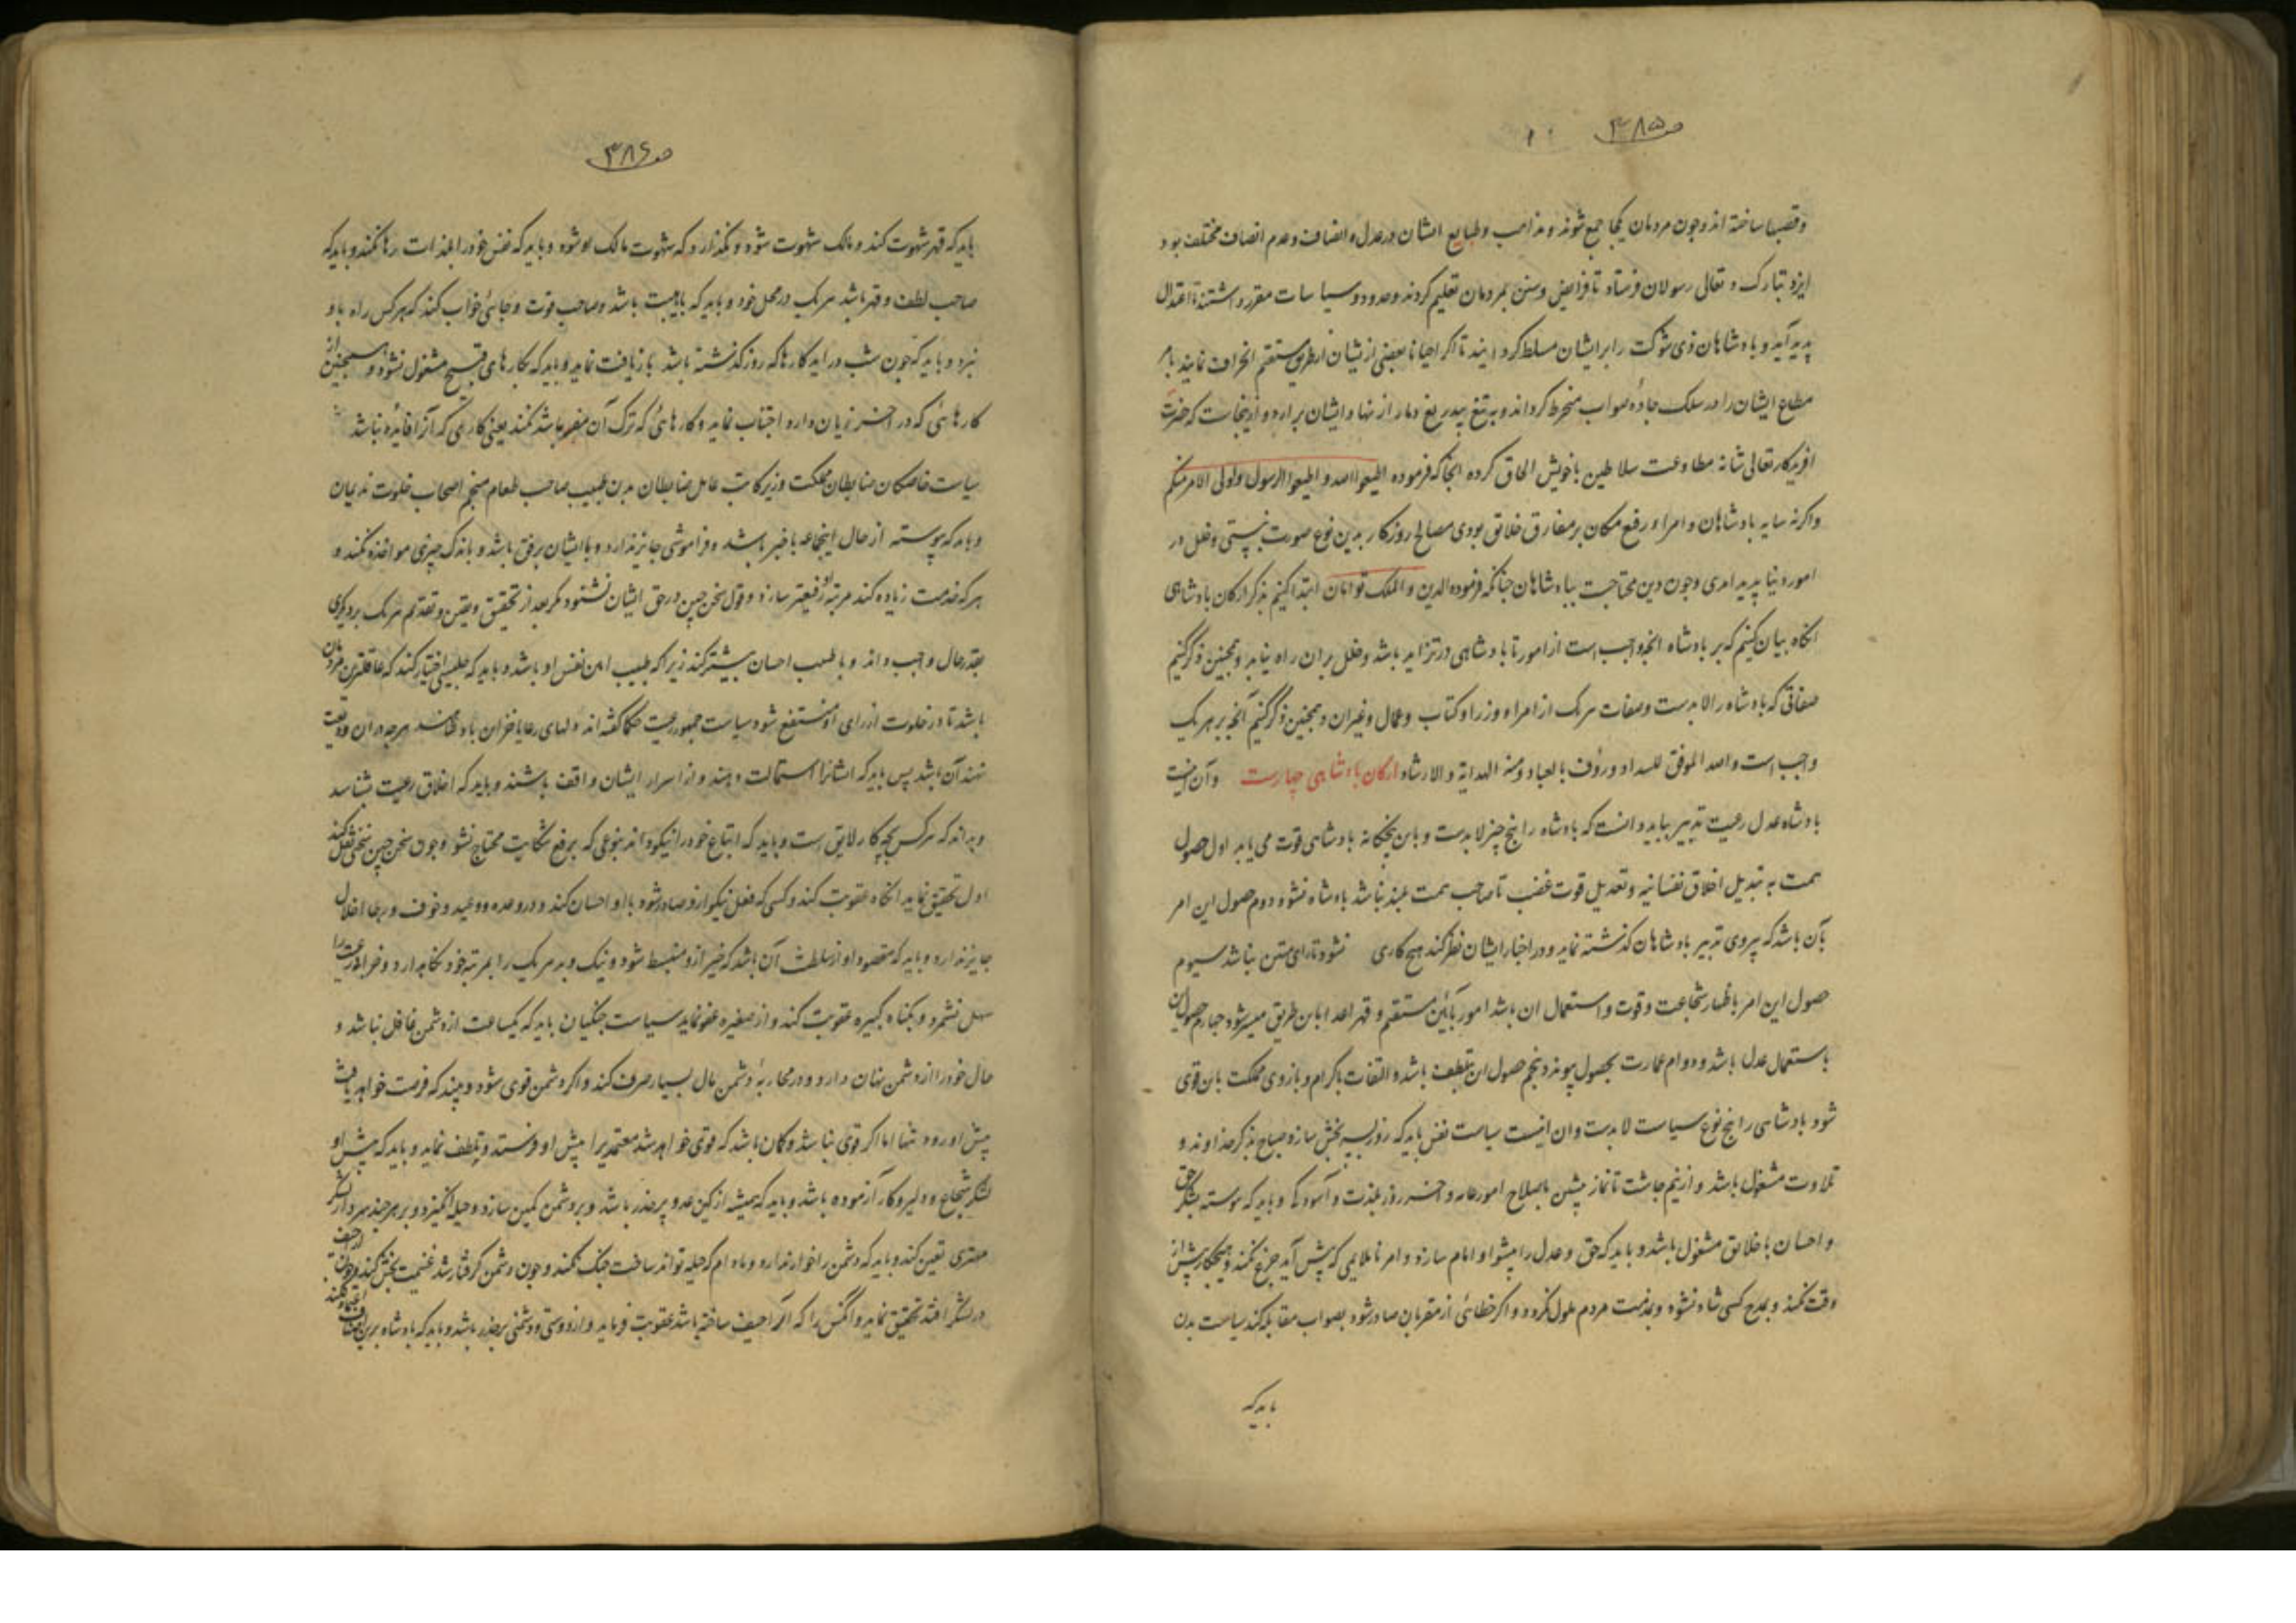 ص۳۸۵
وقصبها ساخته اند و چون مردمان یکجا جمع شوند و مذاهب و طبایع ایشان در عدل و انصاف و عدم انصاف مختلف بود
ایزد تبارک و تعالی رسولان فرستاد تا فرایض و سنن بمردمان تعلیم کردند و حدود و سیاسات مقرر داشتند تا اعتدال
پدید آید و بادشاهان ذی شوکت را بر ایشان مسلط کردانید تا اکر احیانا بعضی از یشان از طریق مستقیم انحراف نمایند بامر
مطاع ایشان را در سلک جادهٔ صواب منخرط کرداند و به تیغ بیدریغ دمار از نهاد ایشان برارد و ازینجاست که حضرت
افریدکار تعالی شانه مطاوعت سلاطین با خویش الحاق کرده انجا که فرموده اطیعوا الله و اطیعوا الرسول و اولی الامر منکم
واکرنه سایه بادشاهان و امراء رفیع مکان بر مفارق خلایق بودی مصالح روزکار بدین نوع صورت نبستی و خلل در
امور دنیا پدید امدی و چون دین محتاجست ببادشاهان چنانکه فرموده الدین و الملک توامان ابتدا کنیم بذکر ارکان بادشاهی
انکاه بیان کنیم که بر بادشاه انچه واجب است از امور تا بادشاهی در تزاید باشد و خلل بران راه نیابد و همچنین ذکر کنیم
صفاتی که بادشاه را لابدست وصفات هریک از امراء و وزرا و کتاب و عمال و غیران و همچنین ذکر کنیم آنچه بر هریک
واجب است و الله الموفق للسداد و رؤف بالعباد ومنه الهدایة و الارشاد ارکان بادشاهی چهارست و آن اینست
بادشاه عدل رعیت تدبیر بباید دانست که بادشاه را پنج چیز لابدست و باین پنجکانه بادشاهی قوت می یابد اول حصول
همت به تبدیل اخلاق نفسانیه و تعدیل قوت غضب تا صاحب همت بلند نباشد بادشاه نشود دوم حصول این امر
بآن باشد که پیروی تدبیر بادشاهان کذشته نماید و در اخبار ایشان نظر کند هیچ کاری نشود تا رای متین نباشد سیوم
حصول این امر باظهار شجاعت و قوت و استعمال ان باشد امور بآئین مستقیم و قهر اعدا باین طریق میسر شود چهارم حصول این
باستعمال عدل باشد و دوام عمارت بحصول پیوندد پنجم حصول ان بتلطف باشد و التفات باکرام و بازوی مملکت باین قوی
شود بادشاهی را پنج نوع سیاست لابدست و ان اینست سیاست نفس باید که روز بسه بخش سازد صباح بذکر خداوند و
تلاوت مشغول باشد و از نیم چاشت تا نماز پیشین باصلاح امور عامه و اخر روز بلذت و آسودکی و باید که پیوسته بشکر حق
و احسان با خلایق مشغول باشد و باید که حق و عدل را پیشوا و امام سازد و امر ناملایمی که پیش آید جزع نکند و هیچکار پیش از
وقت نکند و بمدح کسی شاد نشود و بمذمت مردم ملول نکردد و اکر خطائی از مقربان صادر شود بصواب مقابله کند سیاست بدن
باید که
ص۳۸۶
باید که قهر شهوت کند و مالک شهوت شود و نکذارد که شهوت مالک او شود و باید که نفس خود را بلذات رها نکند و باید که
صاحب لطف و قهر باشد هریک در محل خود و باید که باهیبت باشد و صاحب قوت و جائی خواب کند که هرکس راه باو
نبرد و باید که چون شب دراید کارها که روز کذشته باشد بازیافت نماید و باید که بکارهای قبیح مشغول نشود و همچنین از
کارهائی که در اخر زیان دارد اجتناب نماید و کارهائی که ترک آن مضر باشد نکند یعنی کاری که آنرا فایده نباشد
سیاست خاصکان ضابطان مملکت وزیر کاتب عامل ضابطان بدن طبیب صاحب طعام منجم اصحاب خلوت ندیمان
و باید که پیوسته از حال اینجماعه باخبر باشد و فراموشی جایز ندارد و با ایشان برفق باشد و باندک چیزی مواخذه نکند و
هرکه خدمت زیاده کند مرتبه او رفیعتر سازد و قول سخن چین در حق ایشان نشنود مکر بعد از تحقیق و یقین و تقدیم هریک بر دیکری
بقدر حال واجب داند و با طبیب احسان بیشتر کند زیرا که طبیب امین نفس او باشد و باید که جلیسی اختیار کند که عاقلترین مردمان
باشد تا در خلوت از رای او منتفع شود سیاست جمهور رعیت حکما کفته اند دلهای رعایا خزاین بادشاهند هرچه دران ودیعت
نهند آن باشد پس باید که ایشانرا استمالت دهند و از اسرار ایشان واقف باشند و باید که اخلاق رعیت بشناسد
و بداند که هرکس بچه کار لایق است و باید که اتباع خود را نیکو داند بنوعی که برفع شکایت محتاج نشود و چون سخن چین سخنی نقل کند
اول تحقیق نماید انکاه عقوبت کند و کسی که فعل نیکو ازو صادر شود با او احسان کند و در وعده و وعید و خوف و رجا اخلال
جایز ندارد و باید که مقصود او از سلطنت آن باشد که خیر ازو منبسط شود و نیک و بد هریک را بمرتبه خود نکاهدارد و ضرابه رعیت را
سهل نشمرد و بکناه کبیره عقوبت کند و از صغیره عفو نماید سیاست جنکیان باید که یکساعت از دشمن غافل نباشد و
حال خود را از دشمن پنهان دارد و در محاربهٔ دشمن مال بسیار صرف کند و اکر دشمن قوی شود و بیند که فرصت خواهد یافت
پیش او رود تنها اما اکر قوی نباشد و کمان باشد که قوی خواهد شد معتمدیرا پیش او فرستد و تلطف نماید و باید که پیش او
لشکر شجاع و دلیر و کار آزموده باشد و باید که همیشه از کین عدو پرحذر باشد و بر دشمن کمین سازد و حیله انکیزد و بر هر چند سردار لشکر
مهتری تعین کند و باید که دشمن را خوار ندارد و مادام که حیله تواند ساخت جنک نکند و چون دشمن کرفتار شد غنیمت بخش کند
در لشکر افتد تحقیق نماید و انکس را که آلة حیف ساخته باشد عقوبت فرماید و از دوستی و دشمنی برحذر باشد و باید که بادشاه برین